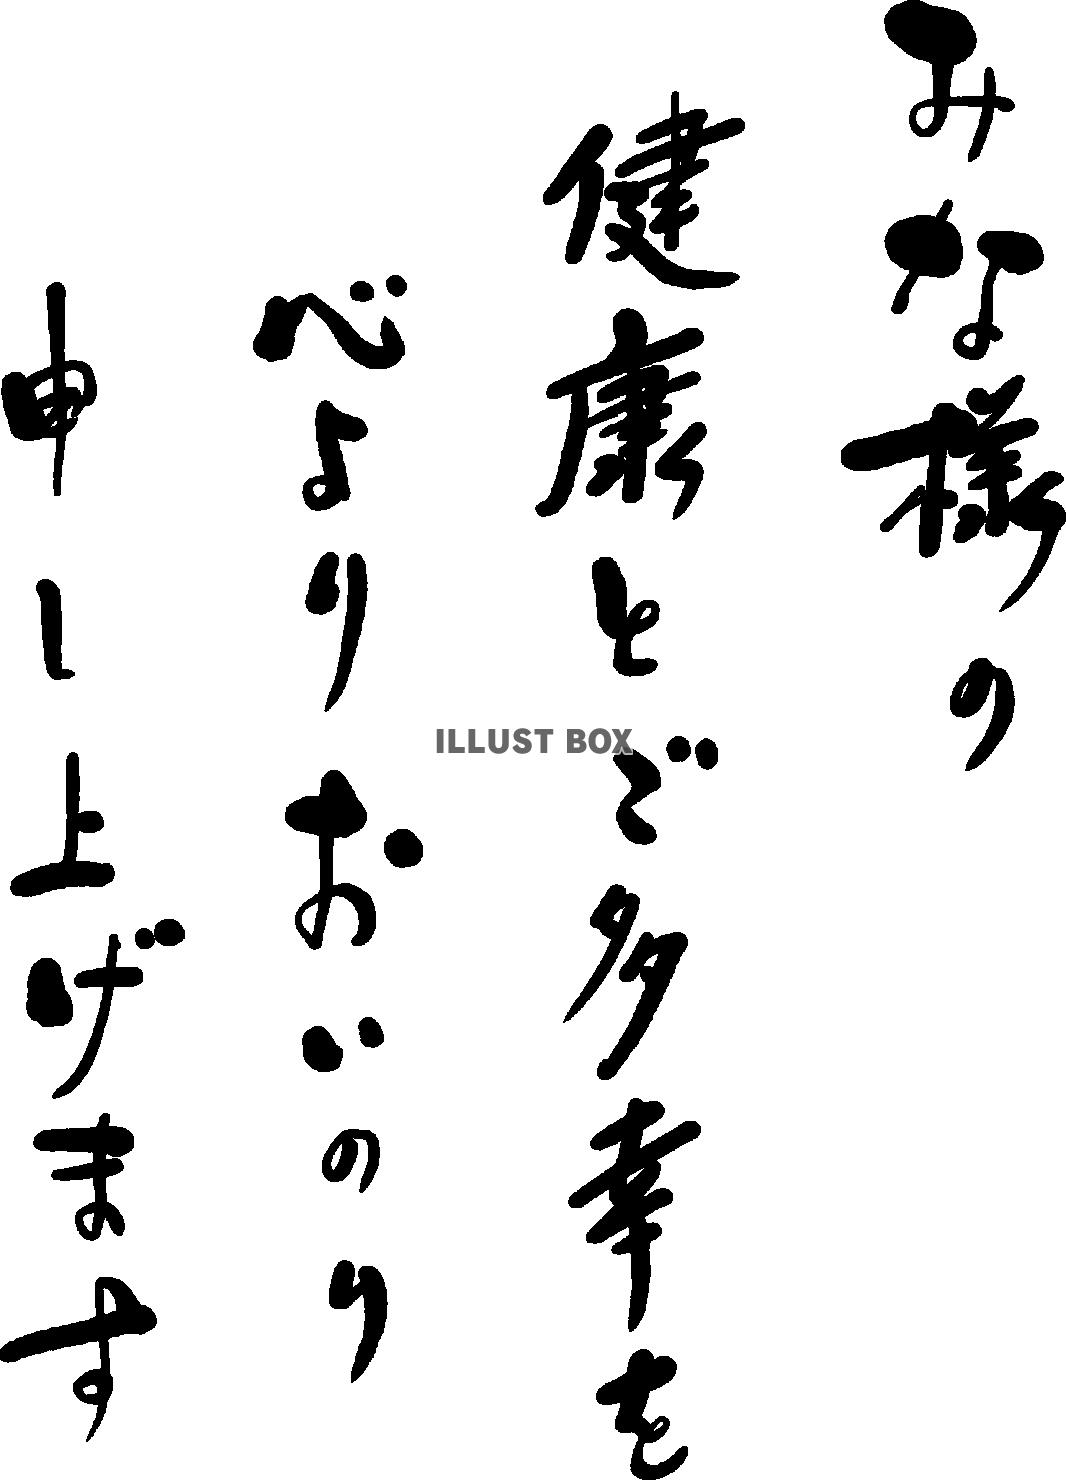 みな様の
健康とご多幸を
心よりおいのり
申し上げます
ILLUST BOX